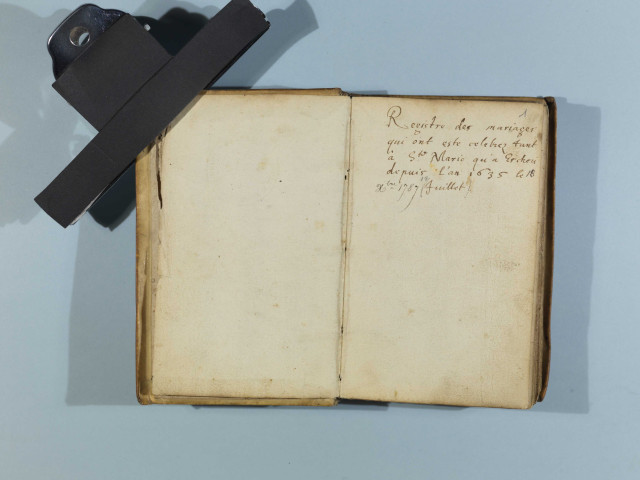 1
Regitre des mariages
qui ont esté celebrez tant
à Ste Marie qu'a Erchou
depuis l'an 1635 le 18
Xbre 1707 (Juillet)